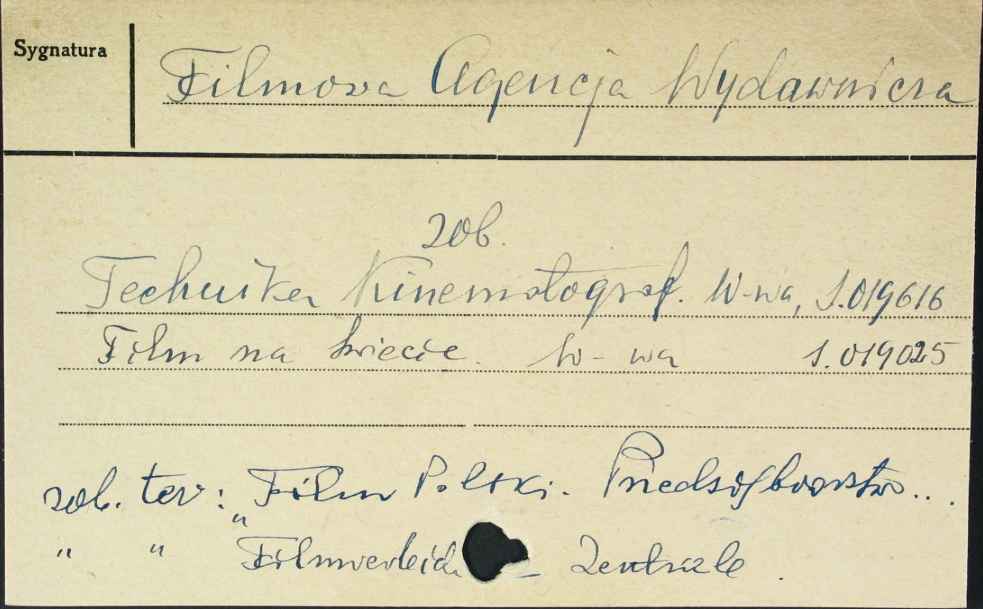 Sygnatura
Filmowa Agencja Wydawnicza
zob.
Technika Kinematograf. W-wa, S.019616
Film na świecie. W-wa S.019025
zob. też: Film Polski. Przedsiębiorstwo...
" " "Filmverleih - Zentrale.